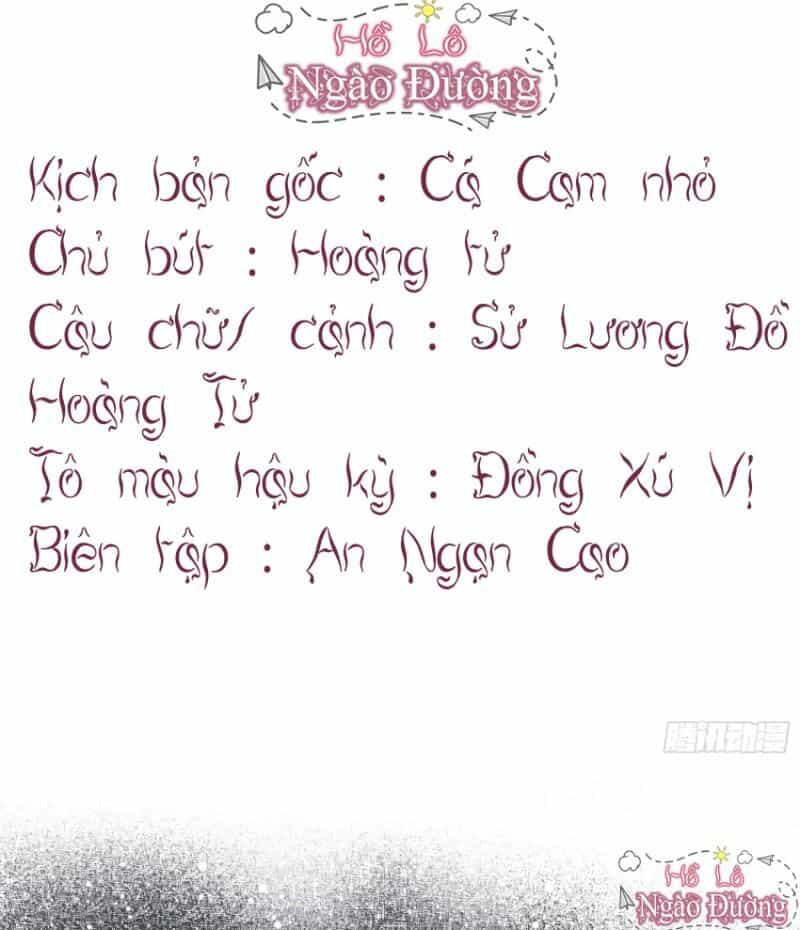 Hồ Lô
Ngào Đường
Kịch bản gốc : Cá Cam nhỏ
Chủ bút : Hoàng tử
Câu chữ/ cảnh : Sử Lương Đồ
Hoàng Tử
Tô màu hậu kỳ : Đồng Xú Vị
Biên tập : An Ngạn Cao
Hồ Lô
Ngào Đường